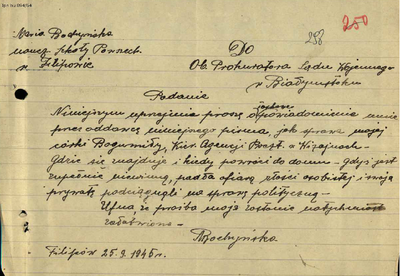 250
298
Maria Bochyńska
naucz. szkoły Powszech.
w Filipowie
Do
Ob. Prokuratora Sądu Wojennego
w Białymstoku
Podanie
Niniejszym uprzejmie proszę o łaskawe powiadomienie mnie
przez oddawcę niniejszego pisma, jak sprawa mojej
córki Bogumiły, Kier. Agencji Poczt. w Wiżajnach -
gdzie się znajduje i kiedy powróci do domu - gdyż jest
zupełnie niewinną, padła ofiarą złości osobistej i swoją
prywatę podciągnęli na sprawę polityczną -
Ufna, że prośba moja zostanie natychmiast
załatwiona -
MBochyńska
Filipów 25.9.1945 r.